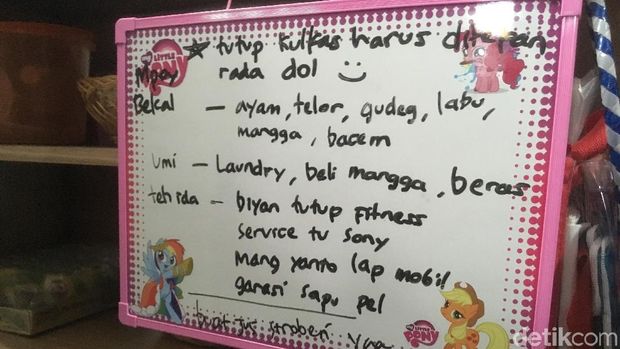 MY LITTLE PONY
☆ tutup kulkas harus ditekan
rada dol ☺
Bekal — ayam, telor, gudeg, labu,
mangga, bacem
Umi — Laundry, beli mangga, beras
teh ida — biyan tutup fitness
service tv Sony
Mang yanto lap mobil
garasi sapu pel
buat jus stroberi yaa
MY LITTLE PONY
detikcom